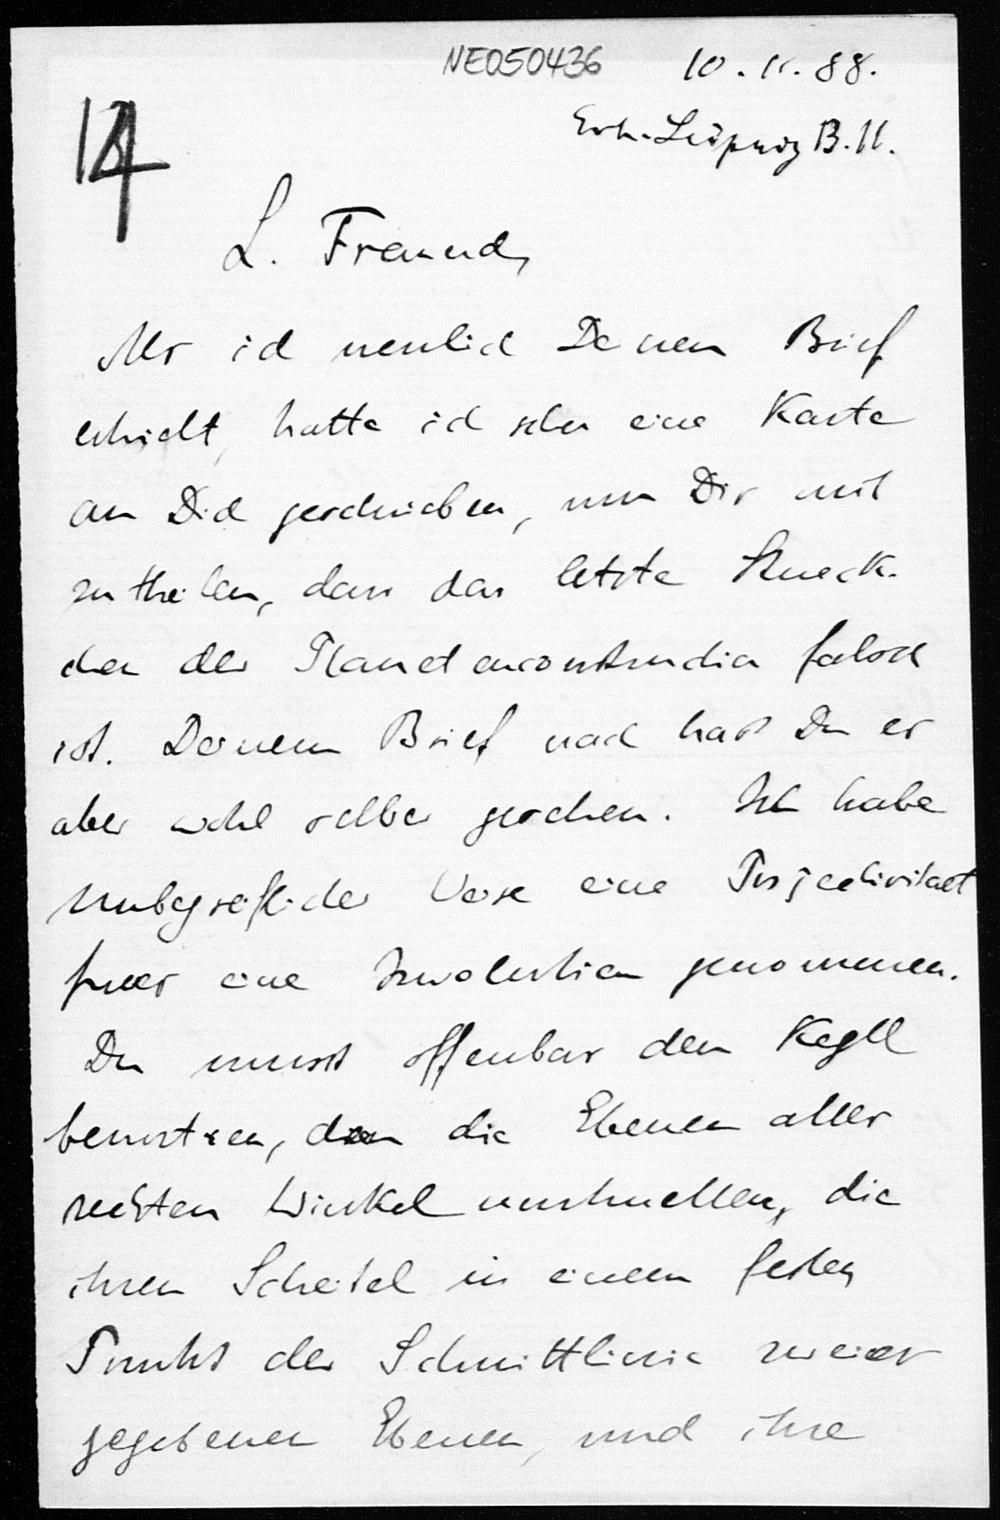 NE050436
10.11.88.
14
Leipzig B.H.
L. Freund,
Als ich neulich Deinen Brief
erhielt, hatte ich schon eine Karte
an Dich geschrieben, um Dir mit
zutheilen, dass das letzte Stueck-
chen der Planetenconstruction falsch
ist. Deinem Brief nach hast Du es
aber wohl selber gesehen. Ich habe
unbegreiflicher Weise eine Projectivitaet
fuer eine Involution genommen.
Du musst offenbar den Kegel
benutzen, den die Ebenen aller
rechten Winkel umhuellen, die
ihren Scheitel in einem festen
Punkt der Schnittlinie zweier
gegebenen Ebenen, und ihre